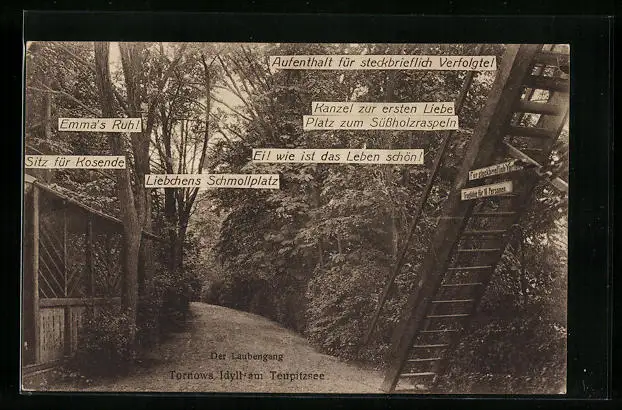 Aufenthalt für steckbrieflich Verfolgte!
Kanzel zur ersten Liebe
Platz zum Süßholzraspeln
Emma's Ruh!
Ei! wie ist das Leben schön!
Sitz für Kosende
Liebchens Schmollplatz
Für steckbrieflich
für 10 Personen
Der Laubengang
Tornows Idyll am Teupitzsee